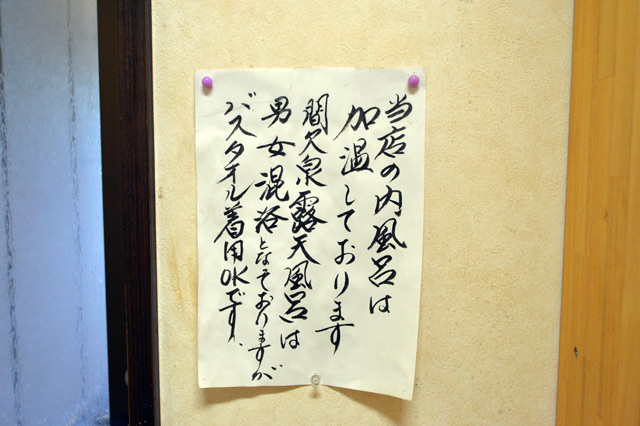 当店の内風呂は
加温しております
間欠泉露天風呂は
男女混浴となっておりますが
バスタオル着用OKです。